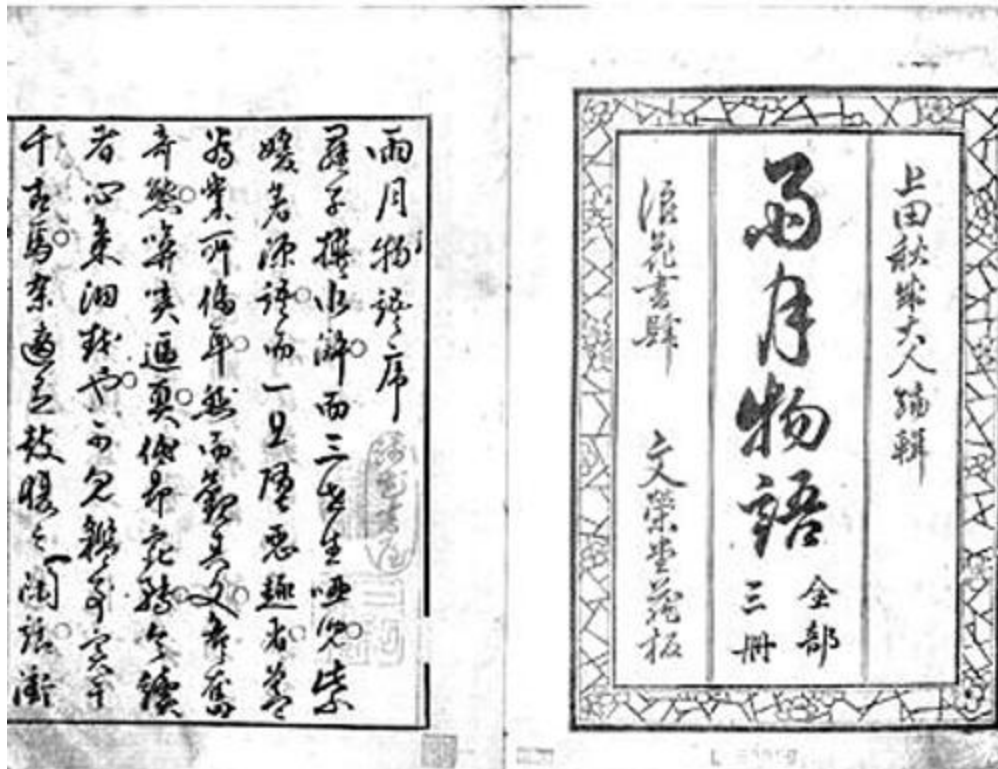 上田秋成大人編輯
雨月物語
全部
三冊
浪花書肆 文榮堂蔵板
雨月物語序
羅子撰水滸。而三世生唖児。紫
媛著源語。而一旦堕悪趣者。蓋
為業所偪耳。然而観其文。各奮
奇態。揜哢逼真。低昂宛転。令讀
者心氣洞越也。可見鑑事実于
千古焉。余適有鼓腹之閑話。衝